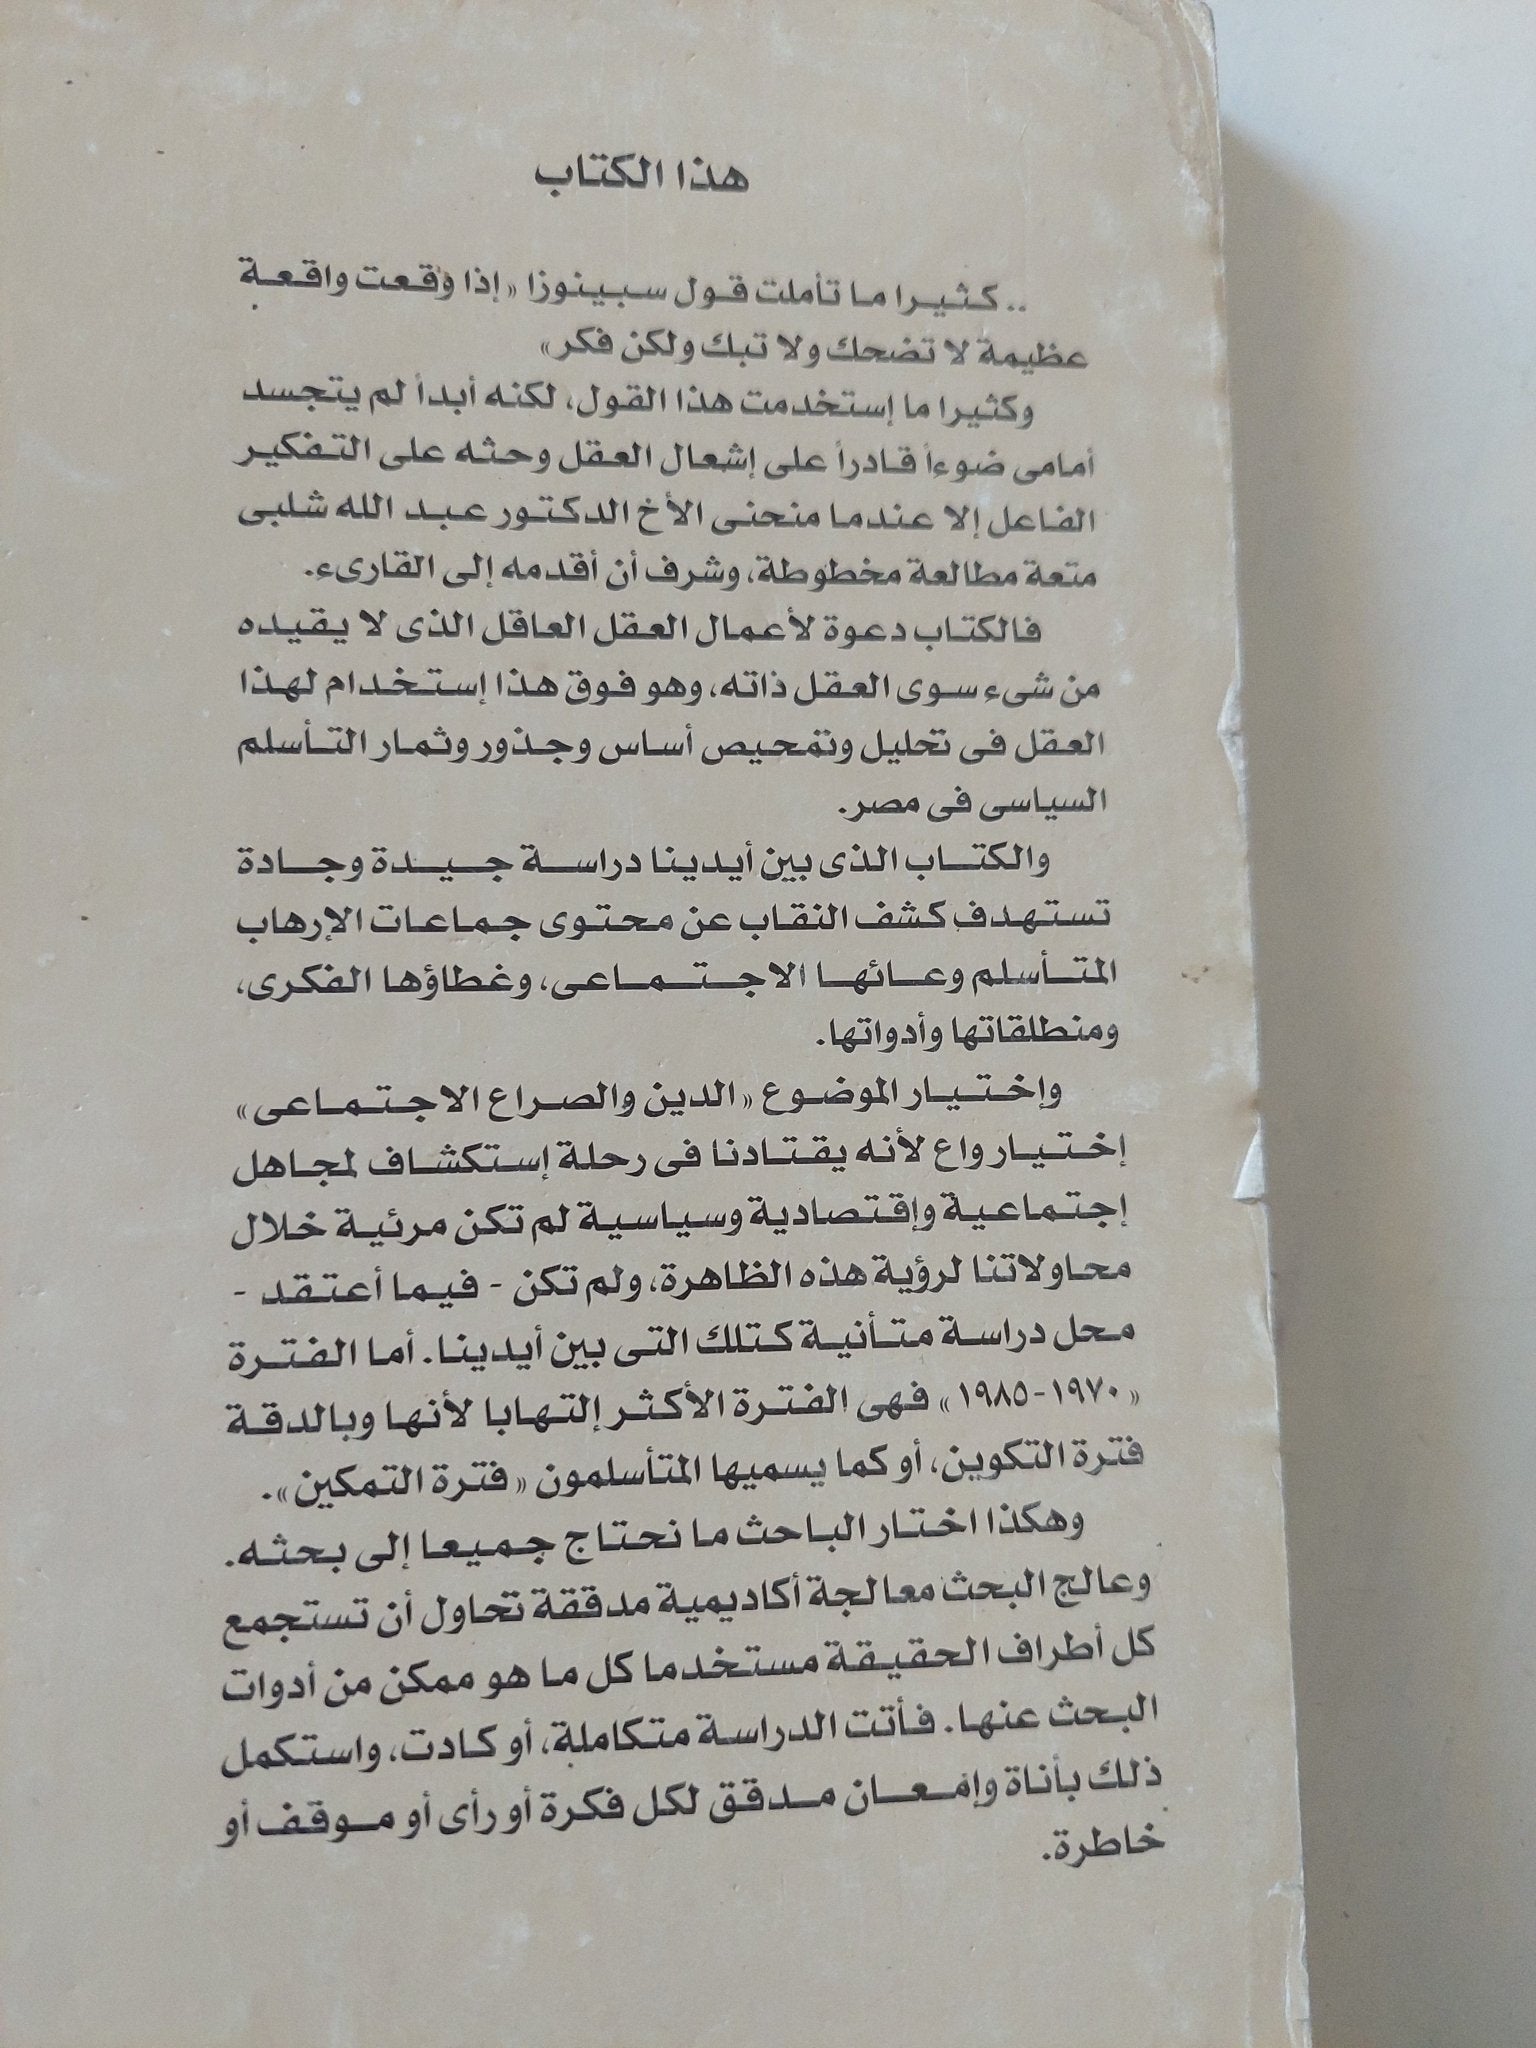 هذا الكتاب
.. كثيرا ما تأملت قول سبينوزا « إذا وقعت واقعة
عظيمة لا تضحك ولا تبك ولكن فكر »
وكثيرا ما إستخدمت هذا القول، لكنه أبداً لم يتجسد
أمامى ضوءاً قادراً على إشعال العقل وحثه على التفكير
الفاعل إلا عندما منحنى الأخ الدكتور عبد الله شلبى
متعة مطالعة مخطوطة، وشرف أن أقدمه إلى القارىء.
فالكتاب دعوة لأعمال العقل العاقل الذى لا يقيده
من شىء سوى العقل ذاته، وهو فوق هذا إستخدام لهذا
العقل فى تحليل وتمحيص أساس وجذور وثمار التأسلم
السياسى فى مصر.
والكتاب الذى بين أيدينا دراسة جيدة وجادة
تستهدف كشف النقاب عن محتوى جماعات الإرهاب
المتأسلم وعائها الاجتماعى، وغطاؤها الفكرى،
ومنطلقاتها وأدواتها.
وإختيار الموضوع « الدين والصراع الاجتماعى »
إختيار واع لأنه يقتادنا فى رحلة إستكشاف لمجاهل
إجتماعية وإقتصادية وسياسية لم تكن مرئية خلال
محاولاتنا لرؤية هذه الظاهرة، ولم تكن - فيما أعتقد -
محل دراسة متأنية كتلك التى بين أيدينا. أما الفترة
« ١٩٧٠-١٩٨٥ » فهى الفترة الأكثر إلتهابا لأنها وبالدقة
فترة التكوين، أو كما يسميها المتأسلمون « فترة التمكين ».
وهكذا اختار الباحث ما نحتاج جميعا إلى بحثه.
وعالج البحث معالجة أكاديمية مدققة تحاول أن تستجمع
كل أطراف الحقيقة مستخدما كل ما هو ممكن من أدوات
البحث عنها. فأتت الدراسة متكاملة، أو كادت، واستكمل
ذلك بأناة وإمعان مدقق لكل فكرة أو رأى أو موقف أو
خاطرة.